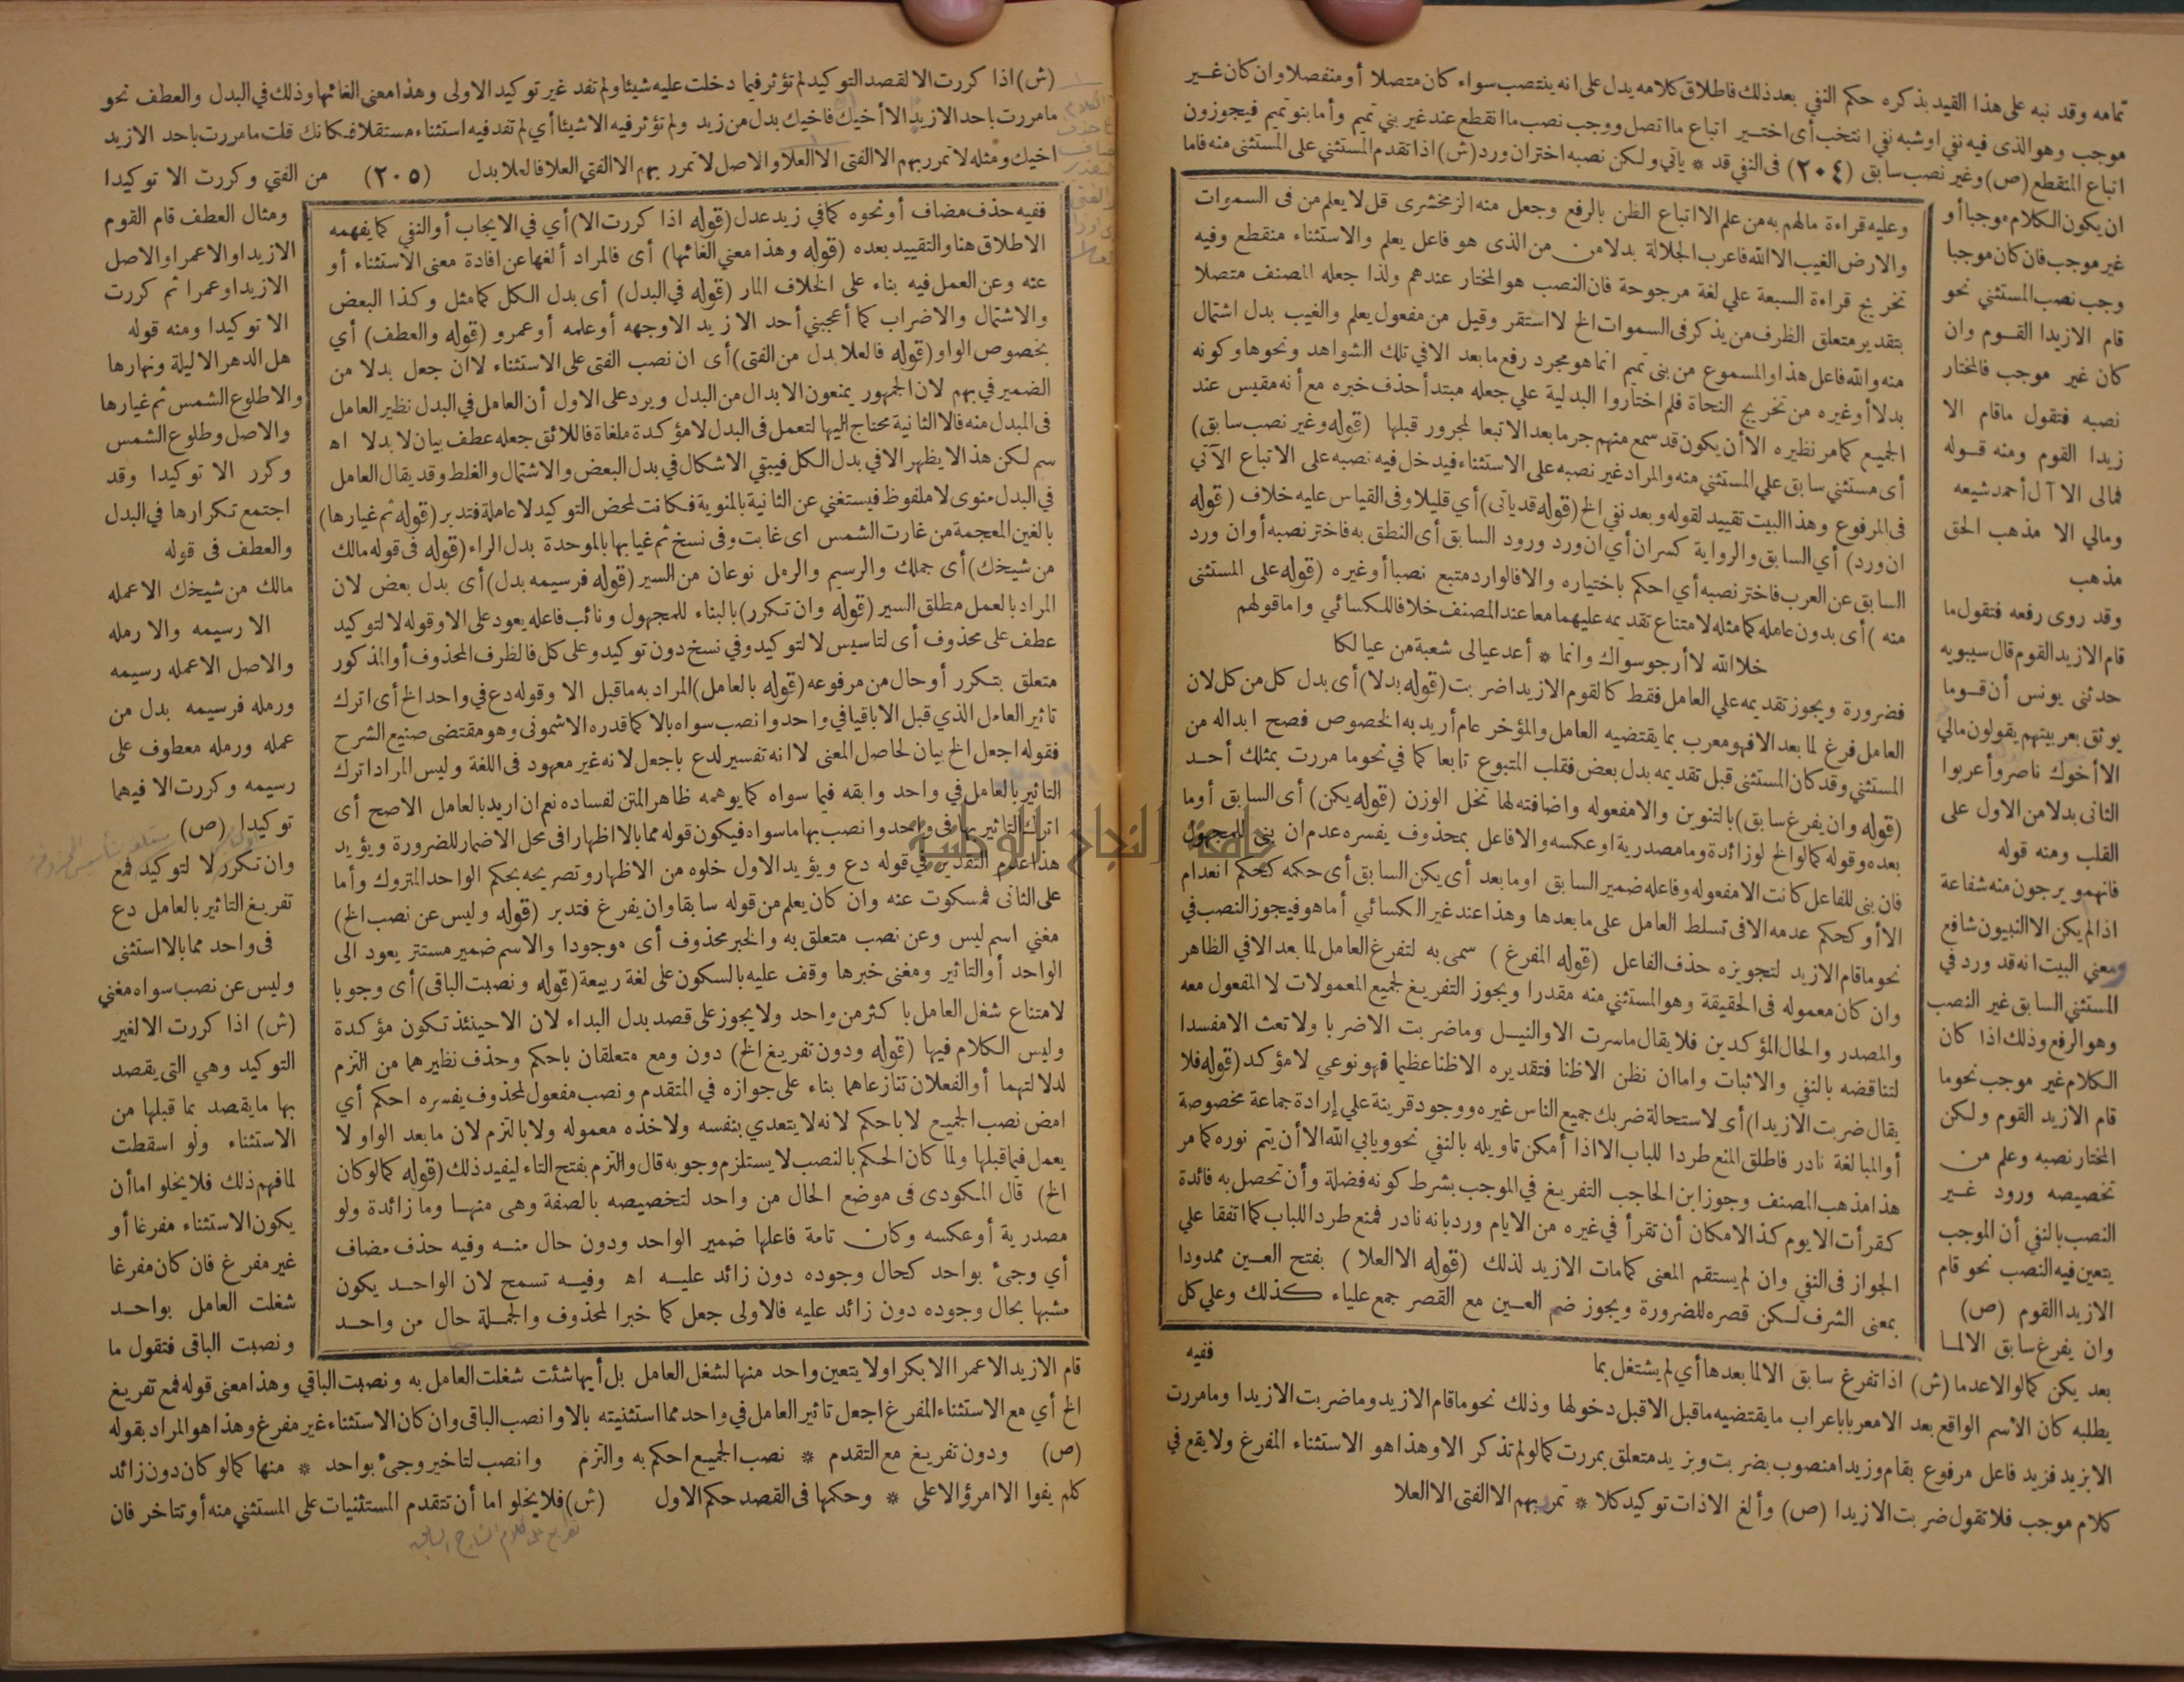 تمامه وقد نبه على هذا القيد بذكره حكم النفي بعد ذلك فاطلاق كلامه يدل على انه ينتصب سواء كان متصلا أو منفصلا وان كان غير
موجب وهو الذى فيه نفي اوشبه نفي انتخب أى اختير اتباع ما اتصل ووجب نصب ما انقطع عند غير بني تميم وأما بنو تميم فيجوزون
اتباع المنقطع (ص) وغير نصب سابق (٢٠٤) فى النفي قد * يأتي ولكن نصبه اختران ورد (ش) اذا تقدم المستثني على المستثنى منه فاما
ان يكون الكلام موجبا أو
غير موجب فان كان موجبا
وجب نصب المستثني نحو
قام الازيدا القوم وان
كان غير موجب فالمختار
نصبه فتقول ماقام الا
زيدا القوم ومنه قوله
فمالى الا آل أحمد شيعه
ومالي الا مذهب الحق
مذهب
وقد روى رفعه فتقول ما
قام الازيد القوم قال سيبويه
حدثنى يونس أن قوما
يوثق بعربيتهم يقولون مالي
الا أخوك ناصر وأعربوا
الثانى بدلا من الاول على
القلب ومنه قوله
فانهمو يرجون منه شفاعة
اذا لم يكن الا النبيون شافع
ومعني البيت انه قد ورد في
المستثني السابق غير النصب
وهو الرفع وذلك اذا كان
الكلام غير موجب نحو ما
قام الازيد القوم ولكن
المختار نصبه وعلم من
تخصيصه ورود غير
النصب بالنفي أن الموجب
يتعين فيه النصب نحو قام
الازيدا القوم (ص)
وان يفرغ سابق الالما
وعليه قراءة مالهم به من علم الا اتباع الظن بالرفع وجعل منه الزمخشرى قل لا يعلم من فى السموات
والارض الغيب الا الله فاعرب الجلالة بدلا من من الذى هو فاعل يعلم والاستثناء منقطع وفيه
تخريج قراءة السبعة علي لغة مرجوحة فان النصب هو المختار عندهم ولذا جعله المصنف متصلا
بتقدير متعلق الظرف من يذكر فى السموات الخ لا استقر وقيل من مفعول يعلم والغيب بدل اشتمال
منه والله فاعل هذا والمسموع من بنى تميم انما هو مجرد رفع ما بعد الافي تلك الشواهد ونحوها وكونه
بدلا أو غيره من تخريج النحاة فلم اختاروا البدلية علي جعله مبتدأ حذف خبره مع أنه مقيس عند
الجميع كما مر نظيره الا أن يكون قد سمع منهم جر ما بعد الا تبعا لمجرور قبلها (قوله وغير نصب سابق)
أى مستثني سابق علي المستثني منه والمراد غير نصبه على الاستثناء فيدخل فيه نصبه على الاتباع الآتي
فى المرفوع وهذا البيت تقييد لقوله وبعد نفي الخ (قوله قد يأتى) أي قليلا وفى القياس عليه خلاف (قوله
ان ورد) أي السابق والرواية كسران أي ان ورد ورود السابق أى النطق به فاختر نصبه أو ان ورد
السابق عن العرب فاختر نصبه أي احكم باختياره والا فالوارد متبع نصبا أو غيره (قوله على المستثنى
منه) أى بدون عامله كما مثله لامتناع تقديمه عليهما معا عند المصنف خلافا للكسائي واما قولهم
خلا الله لا أرجو سواك وانما * أعد عيالى شعبة من عيالكا
فضرورة ويجوز تقديمه علي العامل فقط كالقوم الازيدا ضربت (قوله بدلا) أى بدل كل من كل لان
العامل فرغ لما بعد الا فهو معرب بما يقتضيه العامل والمؤخر عام أريد به الخصوص فصح ابداله من
المستثني وقد كان المستثنى قبل تقديمه بدل بعض فقلب المتبوع تابعا كما في نحو ما مررت بمثلك أحد
(قوله وان يفرغ سابق) بالتنوين والا مفعوله واضافته لها تخل الوزن (قوله يكن) أى السابق أو ما
بعده وقوله كما لو الخ لو زائدة وما مصدرية او عكسه والا فاعل بمحذوف يفسره عدم ان بني للمجهول
فان بنى للفاعل كانت الا مفعوله وفاعله ضمير السابق اوما بعد أى يكن السابق أى حكمه كحكم انعدام
الا أو كحكم عدمه الا فى تسلط العامل على ما بعدها وهذا عند غير الكسائي أما هو فيجوز النصب في
نحو ماقام الازيد لتجويزه حذف الفاعل (قوله المفرغ) سمى به لتفرغ العامل لما بعد الا في الظاهر
وان كان معموله فى الحقيقة وهو المستثني منه مقدرا ويجوز التفريغ لجميع المعمولات لا المفعول معه
والمصدر والحال المؤكدين فلا يقال ما سرت الا والنيل وما ضربت الا ضربا ولا تعث الا مفسدا
لتناقضه بالنفي والاثبات واما ان نظن الا ظنا فتقديره الا ظنا عظيما فهو نوعي لا مؤكد (قوله فلا
يقال ضربت الازيدا) أى لاستحالة ضربك جميع الناس غيره ووجود قرينة علي إرادة جماعة مخصوصة
أو المبالغة نادر فاطلق المنع طردا للباب الا اذا أمكن تاويله بالنفي نحو ويأبي الله الا أن يتم نوره كما مر
هذا مذهب المصنف وجوز ابن الحاجب التفريغ في الموجب بشرط كونه فضلة وأن تحصل به فائدة
كقرأت الا يوم كذا لامكان أن تقرأ في غيره من الايام ورد بانه نادر فمنع طرد اللباب كما اتفقا علي
الجواز فى النفي وان لم يستقم المعنى كما مات الازيد لذلك (قوله الا العلا) بفتح العين ممدودا
بمعنى الشرف لكن قصره للضرورة ويجوز ضم العين مع القصر جمع علياء كذلك وعلي كل
ففيه
بعد يكن كما لو الا عدما (ش) اذا تفرغ سابق الا لما بعدها أي لم يشتغل بما
يطلبه كان الاسم الواقع بعد الا معربا باعراب ما يقتضيه ما قبل الا قبل دخولها وذلك نحو ماقام الازيد وماضربت الازيدا ومامررت
الابزيد فزيد فاعل مرفوع بقام وزيدا منصوب بضربت وبزيد متعلق بمررت كما لو لم تذكر الا وهذا هو الاستثناء المفرغ ولا يقع في
كلام موجب فلا تقول ضربت الازيدا (ص) وألغ الا ذات توكيد كلا * تمرر بهم الا الفتى الا العلا
(ش) اذا كررت الا لقصد التوكيد لم تؤثر فيما دخلت عليه شيئا ولم تفد غير توكيد الاولى وهذا معنى الغائها وذلك في البدل والعطف نحو
مامررت باحد الازيد الا أخيك فاخيك بدل من زيد ولم تؤثر فيه الا شيئا أي لم تفد فيه استثناء مستقلا فكانك قلت مامررت باحد الازيد
اخيك ومثله لا تمرر بهم الا الفتى الا العلا والاصل لا تمرر بهم الا الفتي العلا فالعلا بدل (٢٠٥) من الفتي وكررت الا توكيدا
ففيه حذف مضاف أو نحوه كما في زيد عدل (قوله اذا كررت الا) أي في الايجاب أو النفي كما يفهمه
الاطلاق هنا والتقييد بعده (قوله وهذا معني الغائها) أى فالمراد ألغها عن افادة معنى الاستثناء أو
عنه وعن العمل فيه بناء على الخلاف المار (قوله في البدل) أى بدل الكل كما مثل وكذا البعض
والاشتمال والاضراب كما أعجبني أحد الازيد الا وجهه أو علمه أو عمرو (قوله والعطف) أي
بخصوص الواو (قوله فالعلا بدل من الفتى) أى ان نصب الفتى على الاستثناء لا ان جعل بدلا من
الضمير في بهم لان الجمهور يمنعون الابدال من البدل ويرد على الاول أن العامل في البدل نظير العامل
فى المبدل منه فالا الثانية محتاج اليها لتعمل فى البدل لا مؤكدة ملغاة فاللائق جعله عطف بيان لا بدلا اه
سم لكن هذا لا يظهر الا في بدل الكل فيبقي الاشكال في بدل البعض والاشتمال والغلط وقد يقال العامل
في البدل منوى لا ملفوظ فيستغني عن الثانية بالمنوية فكانت لمحض التوكيد لا عاملة فتدبر (قوله ثم غيارها)
بالغين المعجمة من غارت الشمس اى غابت وفى نسخ ثم غيابها بالموحدة بدل الراء (قوله فى قوله مالك
من شيخك) أى جملك والرسيم والرمل نوعان من السير (قوله فرسيمه بدل) أى بدل بعض لان
المراد بالعمل مطلق السير (قوله وان تكرر) بالبناء للمجهول ونائب فاعله يعود على الا وقوله لا لتوكيد
عطف على محذوف أى لتاسيس لا لتوكيد وفي نسخ دون توكيد وعلى كل فالظرف المحذوف أو المذكور
متعلق بتكرر أو حال من مرفوعه (قوله بالعامل) المراد به ما قبل الا وقوله دع في واحد الخ أى اترك
تاثير العامل الذي قبل الا باقيا في واحد وانصب سواه بالا كما قدره الاشمونى وهو مقتضى صنيع الشرح
فقوله اجعل الخ بيان لحاصل المعنى لا انه تفسير لدع باجعل لانه غير معهود فى اللغة وليس المراد اترك
التاثير بالعامل في واحد وابقه فيما سواه كما يوهمه ظاهر المتن لفساده نعم ان اريد بالعامل الا صح أى
اترك التاثير بها فى واحد وانصب بها ما سواه فيكون قوله مما بالا اظهارا فى محل الاضمار للضرورة ويؤيد
هذا عدم التقدير في قوله دع ويؤيد الاول خلوه من الاظهار وتصريحه بحكم الواحد المتروك وأما
على الثانى فمسكوت عنه وان كان يعلم من قوله سابقا وان يفرغ فتدبر (قوله وليس عن نصب الخ)
مغني اسم ليس وعن نصب متعلق به والخبر محذوف أى موجودا والاسم ضمير مستتر يعود الى
الواحد أو التاثير ومغنى خبرها وقف عليه بالسكون على لغة ربيعة (قوله ونصبت الباقى) أى وجوبا
لامتناع شغل العامل باكثر من واحد ولا يجوز على قصد بدل البداء لان الا حينئذ تكون مؤكدة
وليس الكلام فيها (قوله ودون تفريغ الخ) دون ومع متعلقان باحكم وحذف نظيرهما من التزم
لدلالتهما أو الفعلان تنازعاهما بناء على جوازه في المتقدم ونصب مفعول لمحذوف يفسره احكم أي
امض نصب الجميع لا باحكم لانه لا يتعدي بنفسه ولاخذه معموله ولا بالتزم لان ما بعد الواو لا
يعمل فيما قبلها ولما كان الحكم بالنصب لا يستلزم وجوبه قال والتزم بفتح التاء ليفيد ذلك (قوله كما لو كان
الخ) قال المكودى فى موضع الحال من واحد لتخصيصه بالصفة وهى منها وما زائدة ولو
مصدرية أو عكسه وكان تامة فاعلها ضمير الواحد ودون حال منه وفيه حذف مضاف
أي وجئ بواحد كحال وجوده دون زائد عليه اه وفيه تسمح لان الواحد يكون
مشبها بحال وجوده دون زائد عليه فالاولى جعل كما خبرا لمحذوف والجملة حال من واحد
ومثال العطف قام القوم
الازيدا والا عمرا والاصل
الازيدا وعمرا ثم كررت
الا توكيدا ومنه قوله
هل الدهر الا ليلة ونهارها
والا طلوع الشمس ثم غيارها
والاصل وطلوع الشمس
وكرر الا توكيدا وقد
اجتمع تكرارها في البدل
والعطف فى قوله
مالك من شيخك الا عمله
الا رسيمه والا رمله
والاصل الا عمله رسيمه
ورمله فرسيمه بدل من
عمله ورمله معطوف على
رسيمه وكررت الا فيهما
توكيدا (ص)
وان تكرر لا لتوكيد فمع
تفريغ التاثير بالعامل دع
فى واحد مما بالا استثنى
وليس عن نصب سواه مغني
(ش) اذا كررت الا لغير
التوكيد وهي التى يقصد
بها مايقصد بما قبلها من
الاستثناء ولو اسقطت
لما فهم ذلك فلا يخلو اما أن
يكون الاستثناء مفرغا أو
غير مفرغ فان كان مفرغا
شغلت العامل بواحد
ونصبت الباقى فتقول ما
قام الازيد الا عمرا الا بكرا ولا يتعين واحد منها لشغل العامل بل أيها شئت شغلت العامل به ونصبت الباقي وهذا معنى قوله فمع تفريغ
الخ أي مع الاستثناء المفرغ اجعل تاثير العامل في واحد مما استثنيته بالا وانصب الباقى وان كان الاستثناء غير مفرغ وهذا هو المراد بقوله
(ص) ودون تفريغ مع التقدم * نصب الجميع احكم به والتزم وانصب لتاخير وجئ بواحد * منها كما لو كان دون زائد
كلم يفوا الا امرؤ الا علي * وحكمها فى القصد حكم الاول (ش) فلا يخلو اما أن تتقدم المستثنيات على المستثني منه أو تتاخر فان
جامعة النجاح الوطنية